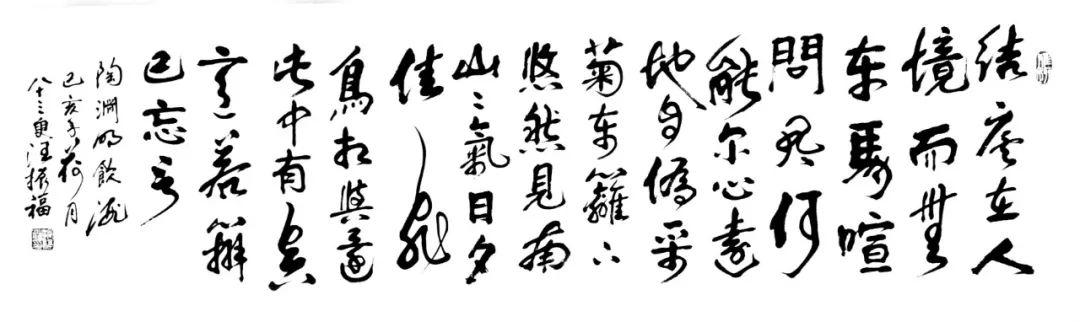 结庐在人
境而無
车馬喧
問君何
能尔心遠
地自偏采
菊东籬下
悠然見南
山〻氣日夕
佳飛
鳥相與還
此中有真
意欲辩
已忘言
陶渊明飲酒
己亥年荷月
八十三叟汪振福